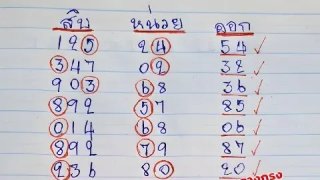 สิบ หน่วย ออก
125 24 54
347 02 32
903 68 36
892 57 85
014 68 06
892 79 87
236 80 20